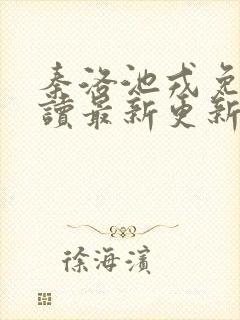 秦洛池戎免
讀最新更新
徐海濱